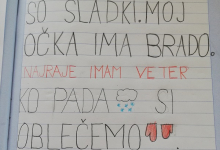 SO SLADKI. MOJ
OČKA IMA BRADO.
NAJRAJE IMAM VETER
KO PADA SI
OBLEČEMO .